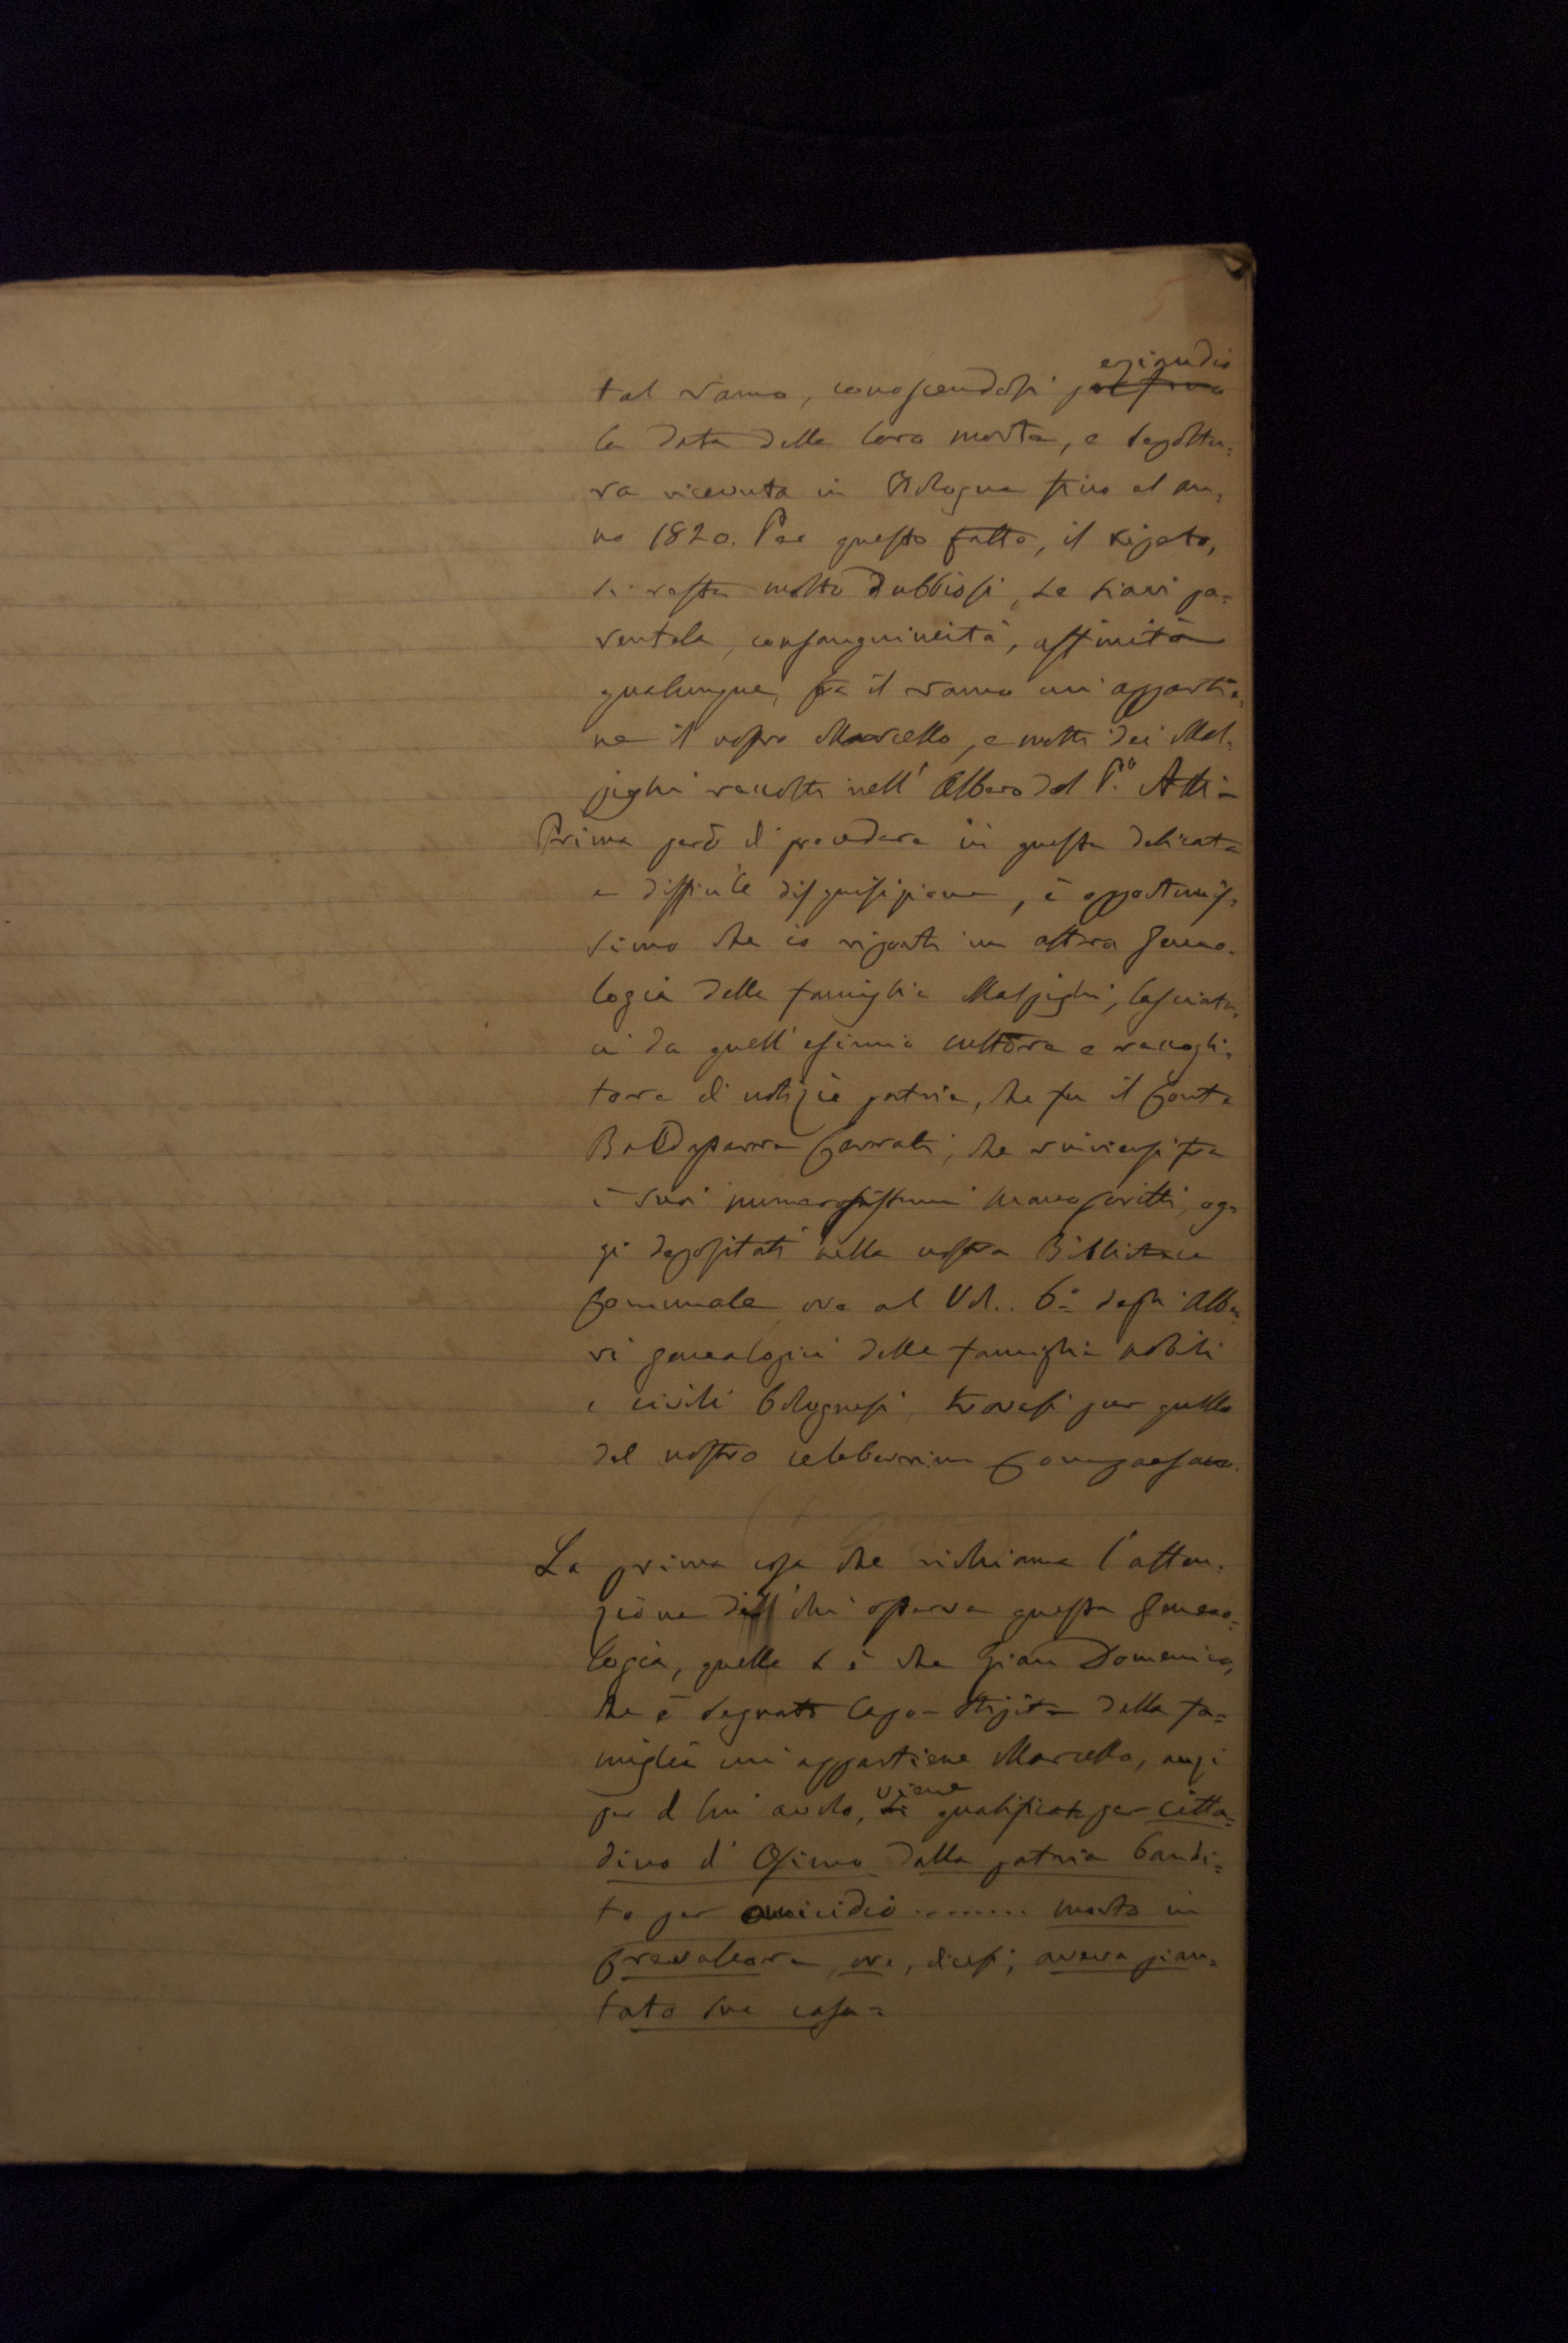 5
eziandio
tal ramo, conoscendosi perfino
la data della loro morte, e sepoltu=
ra ricevuta in Bologna fino al an=
no 1820. Per questo fatto, il ripeto,
si resta molto dubbiosi, se siavi pa=
rentela, consanguineità, affinità
qualunque, fra il ramo cui appartie=
ne il nostro Marcello, e molti dei Mal=
pighi raccolti nell' Albero del P.e Atti=
Prima però di procedere in questa delicata
e difficile disquisizione, è opportunis=
simo che io riporti un altra Genea=
logia della famiglia Malpighi, lasciata=
ci da quell' esimio cultore e raccogli=
tore di notizie patrie, che fu il Conte
Baldassarre Carrati, che rinviensi fra
i suoi numerosissimi manoscritti, og=
gi depositati nella nostra Biblioteca
Comunale, ove al Vol. 6.o degli Albe=
ri genealogici delle famiglie nobili
e civili bolognesi, trovasi pur quello
del nostro celeberrimo Compaesano.
La prima cosa che richiama l'atten=
zione di chi osserva questa Genea=
logia, quella si è che Gian Domenico,
che è segnato Capo-stipite della fa=
miglia cui appartiene Marcello, anzi
viene
per il lui avolo, si qualificato per citta=
dino d' Osimo dalla patria bandi=
to per omicidio ........ morto in
Crevalcore, ove, dicesi, aveva pian=
tato sua casa=